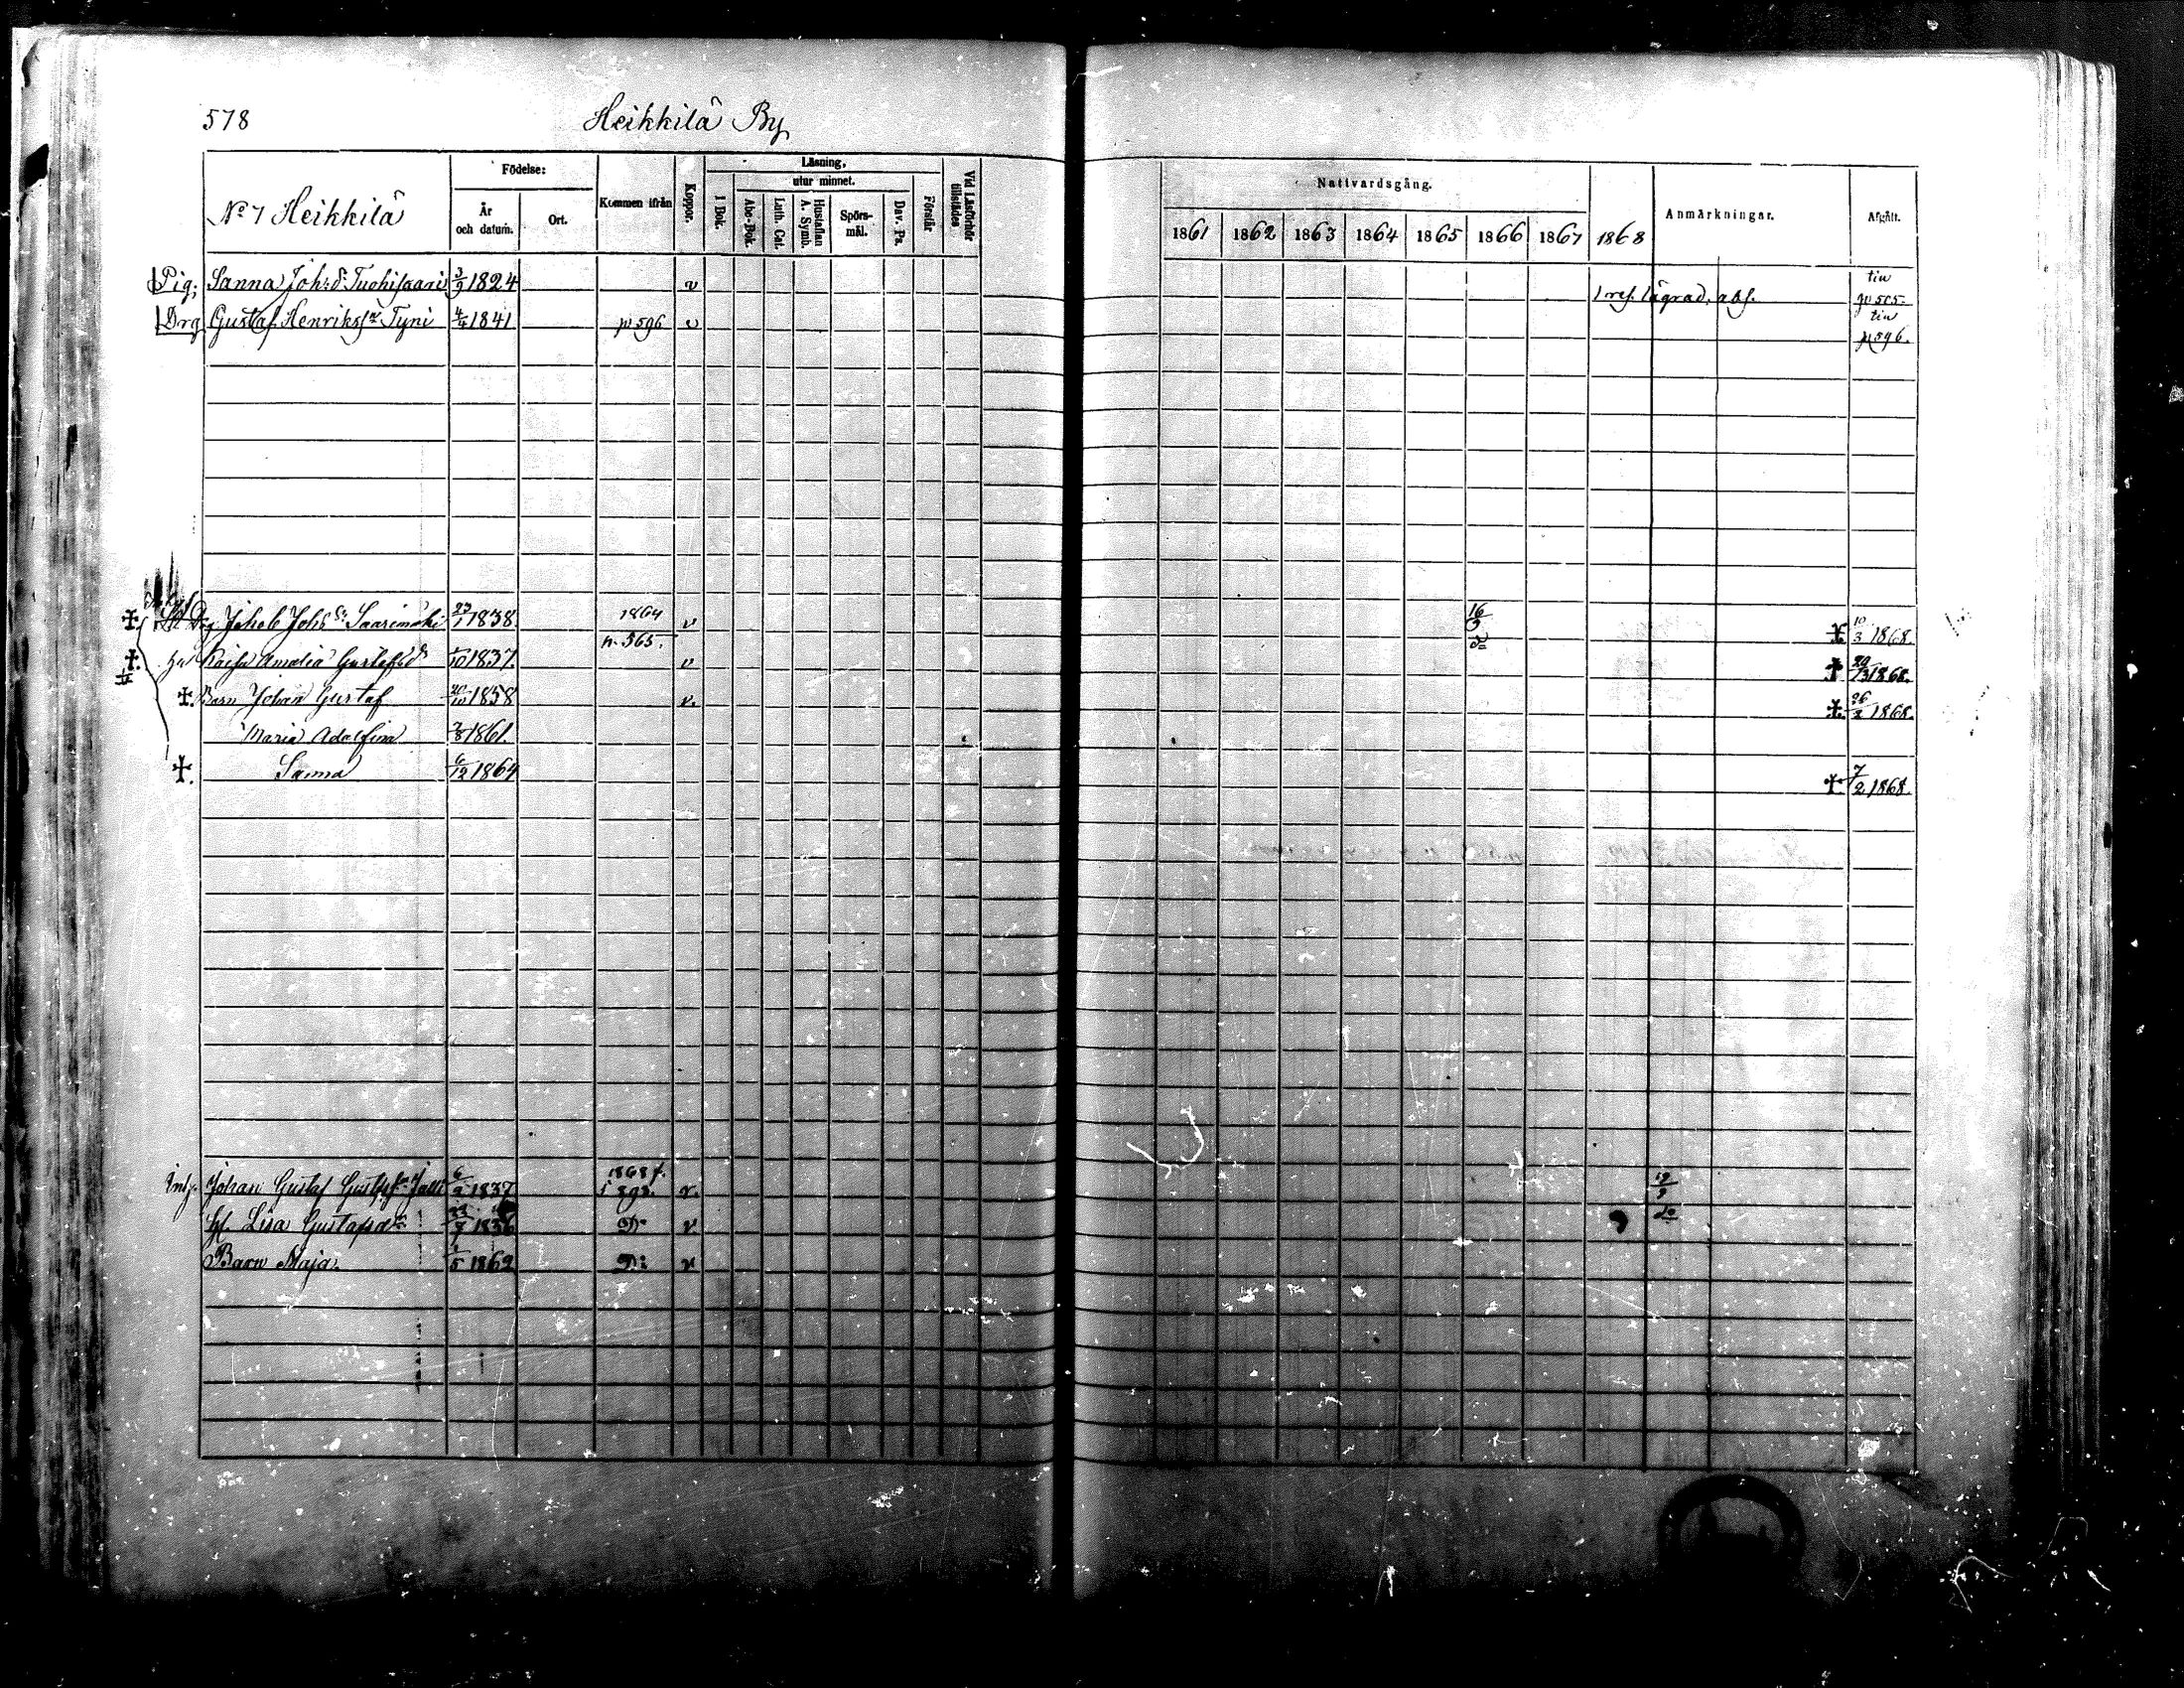 578
Heikkilä By
Nº 7 Heikkilä
Födelse:
År och datum.
Ort.
Kommen ifrån
Koppor.
Läsning,
I Bok.
utur minnet.
Abc-Bok.
Luth. Cat.
Hustaflan A. Symb.
Spörsmål.
Dav. Ps.
Förstår
Vid Läsförhör tillstädes
Nattvardsgång.
1861 1862 1863 1864 1865 1866 1867 1868
Anmärkningar.
Afgått.
Pig. Sanna Joh:d: Tuohisaari 3/9 1824 v abs. tin
Drg Gustaf Henrikss:n Tyni 4/4 1841 p 596 v tin p 596.
Johs Saarimäki 23/1 1838. 1864 p. 565. v 16/9 10/3 1868.
Kaisa Amalia Gustafsd:r 1/10 1837. v d:o 1868.
Barn Johan Gustaf 1858 v. 1868.
Maria Adolfina 1861.
Sanna 6/12 1864 7/2 1868.
Johan Gustaf 1837 v.
Lisa Gustafsd:r 1836 D:o v. d:o
Barn Maja 1/5 1862 D:o v